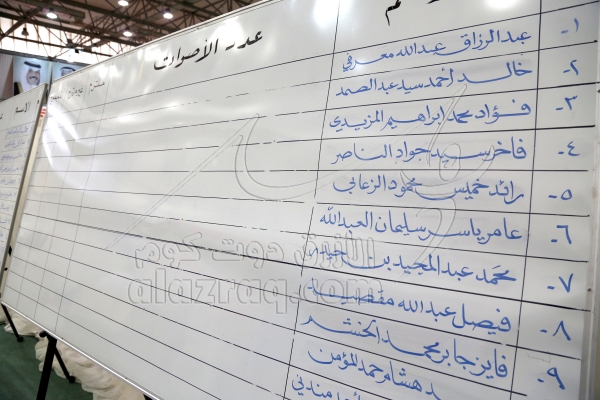 عدد الأصوات
١- عبد الرزاق عبدالله معرفي
٢- خالد أحمد سيد عبد الصمد
٣- فؤاد محمد ابراهيم المزيدي
٤- فاخر سيد جواد الناصر
٥- رائد خميس محمود الزعابي
٦- عامر ياسر سليمان العبدالله
٧- محمد عبد المجيد بن
٨- فيصل عبدالله
٩- فايز جابر محمد
هشام حمد المؤمن
الأزرق دوت كوم
alazraq.com